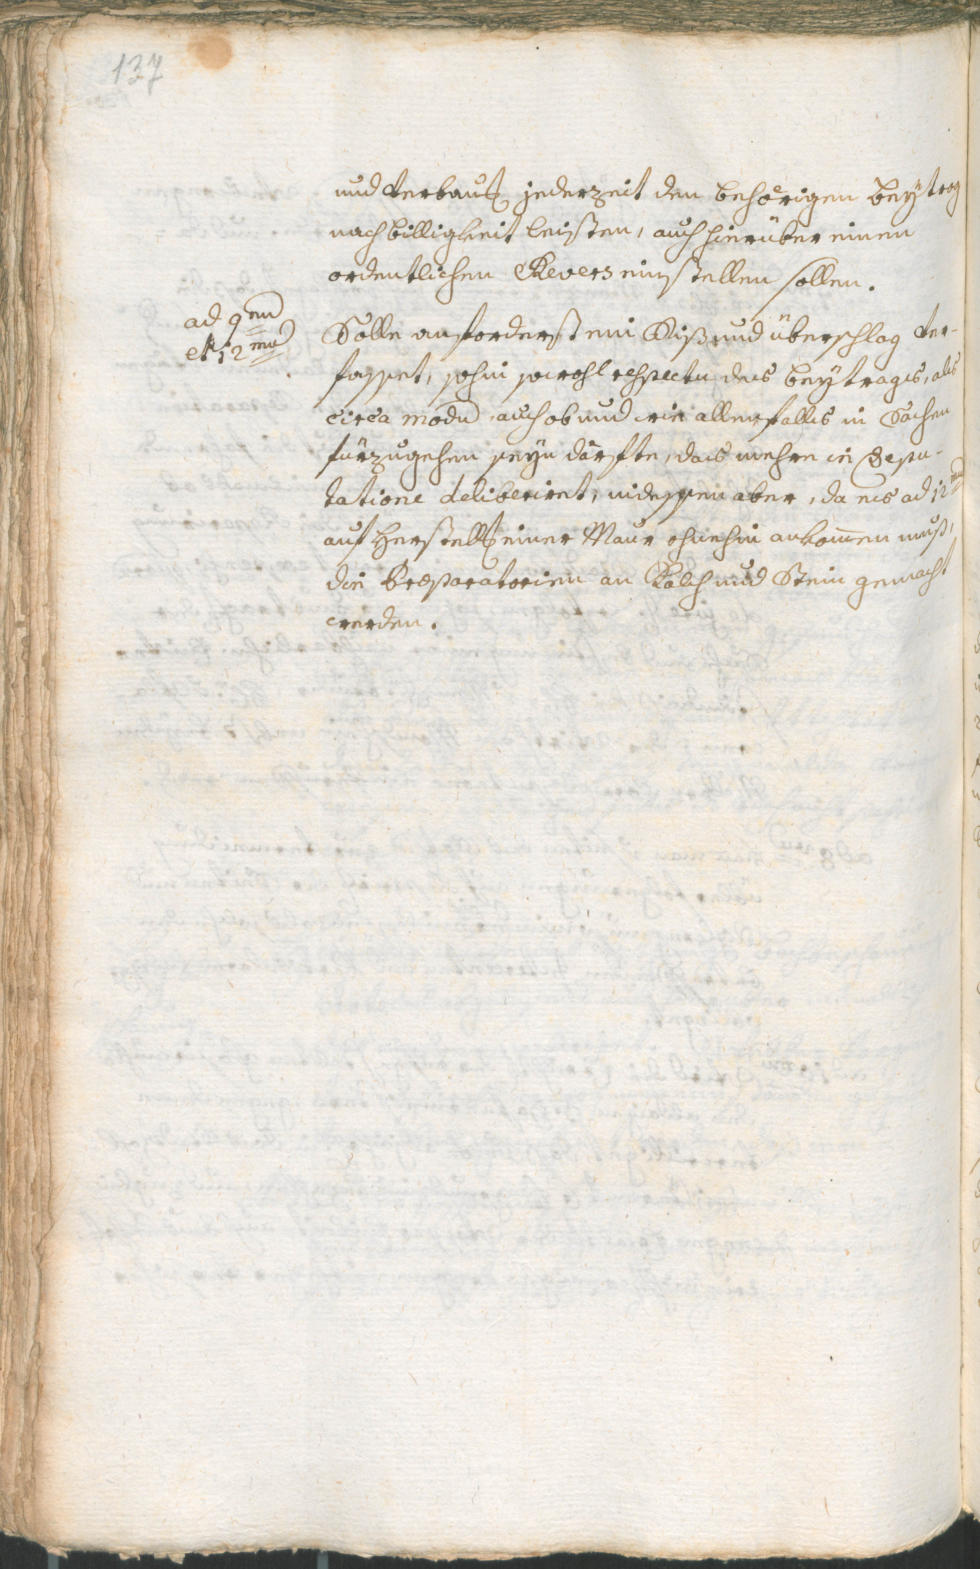 137
und Verbauß jederzeit den behörigen beÿtrag
nach billigkeit leisten, auch hierüber einen
ordentlichen Revers einstellen sollen.
ad 9^(em)
et 12^(mu)
Solle anforderst ein Riß und überschlag ver-
fasset, sohin sowohl respectu des beytrags, als
circa modū auch ob und wie allenfalls in Sachen
fürzugehen seyn därfte, das mehre in Depu-
tatione deliberiret, indessen aber, da es ad 12^(mu)
auf Herstell einer Maur ohnehin ankom̄en muß,
die Præparatorien an Kalch und Stein gemacht
werden.